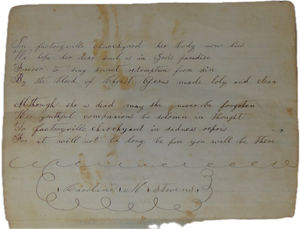 In factoryville churchyard her body now lies
We hope her dear soul is in Gods paradise
Forever to sing sweet redemption from sin
By the blood of Christ Jesus made holy and clean
Although she is dead may she never be forgotten
Her youthful companions be solemn in thought
In factoryville churchyard in sadness repose
For it will not to long be for you will be there
Caroline M Stevens